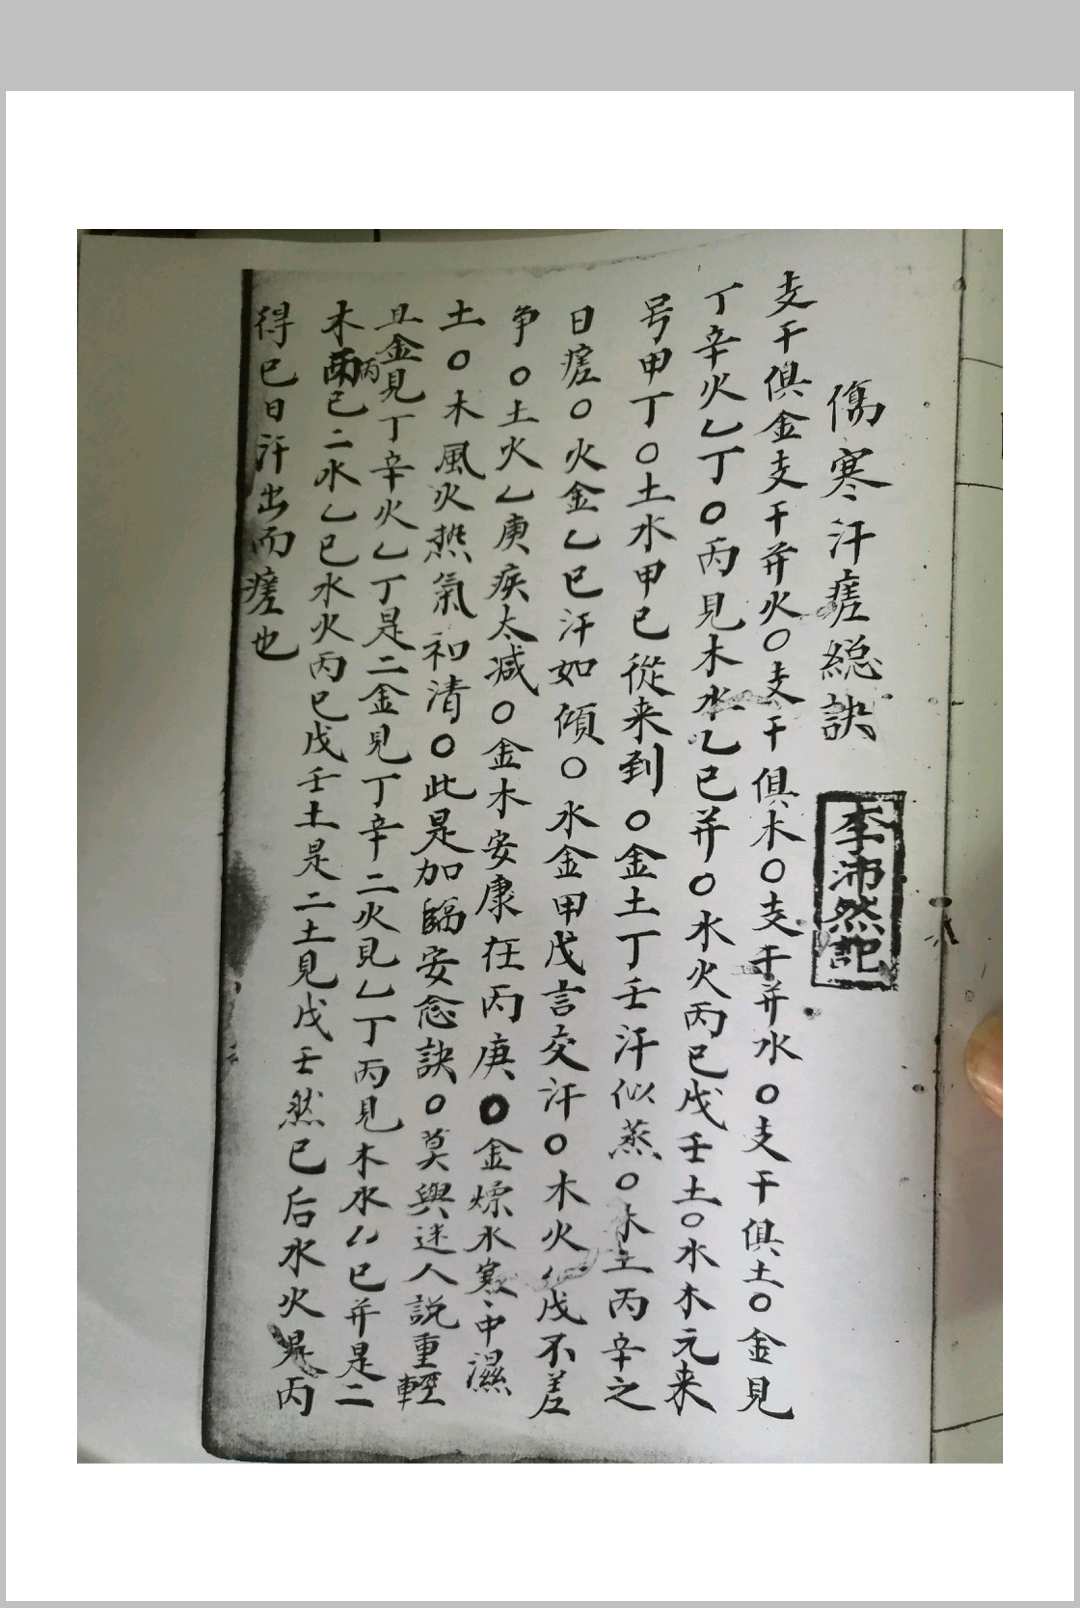 傷寒汗瘥総訣
李沛然記
支干俱金支干并火〇支干俱木〇支干并水〇支干俱土〇金見
丁辛火乙丁〇丙見木水乙已并〇水火丙已戊壬土〇水木元来
号甲丁〇土水甲已從来到〇金土丁壬汗似蒸〇木土丙辛之
日瘥〇火金乙已汗如傾〇水金甲戊言交汗〇木火乙戊不差
争〇土火乙庚疾太减〇金木安康在丙庚〇金燥水寒中濕
土〇木風火热氣和清〇此是加臨安愈訣〇莫與迷人説重輕
且金見丁辛火乙丁是二金見丁辛二火見乙丁丙見木水乙已并是二
木丙已二水乙已水火丙已戊壬土是二土見戊壬然已后水火是丙
得已日汗出而瘥也